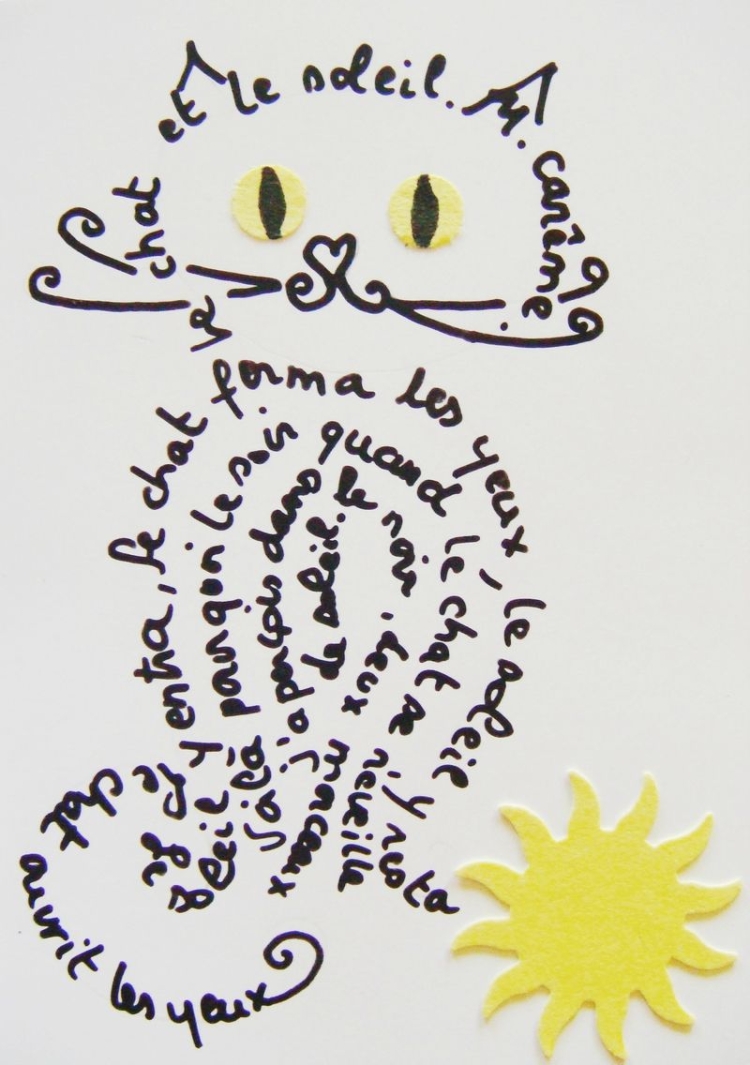 le chat et le soleil. M. carême.
le chat ouvrit les yeux
le soleil y entra, le chat ferma les yeux, le soleil y resta
pourquoi le soir quand le chat se réveilla
j'aperçois dans le noir, deux morceaux
de soleil.